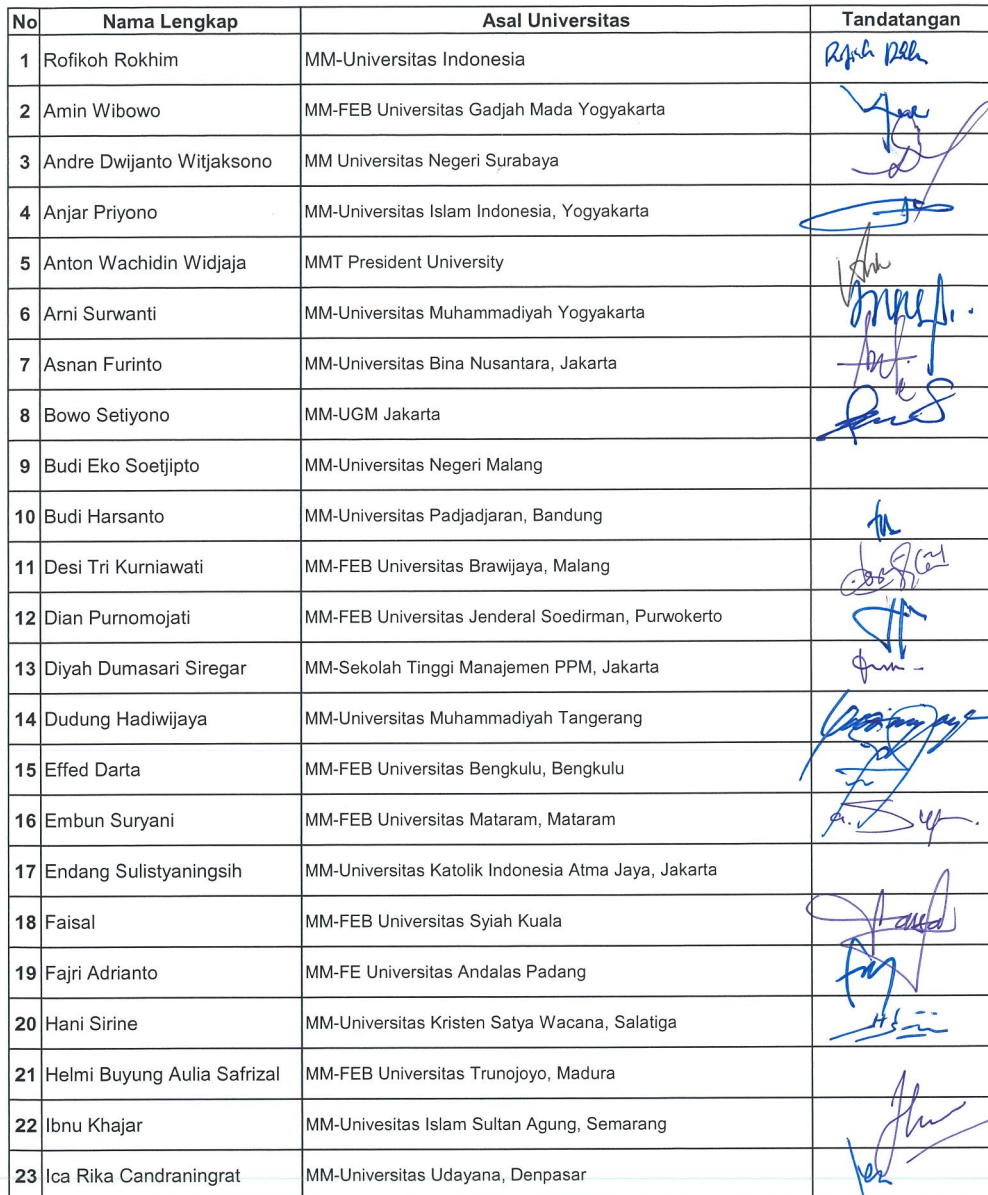 No Nama Lengkap Asal Universitas Tandatangan
1 Rofikoh Rokhim MM-Universitas Indonesia
2 Amin Wibowo MM-FEB Universitas Gadjah Mada Yogyakarta
3 Andre Dwijanto Witjaksono MM Universitas Negeri Surabaya
4 Anjar Priyono MM-Universitas Islam Indonesia, Yogyakarta
5 Anton Wachidin Widjaja MMT President University
6 Arni Surwanti MM-Universitas Muhammadiyah Yogyakarta
7 Asnan Furinto MM-Universitas Bina Nusantara, Jakarta
8 Bowo Setiyono MM-UGM Jakarta
9 Budi Eko Soetjipto MM-Universitas Negeri Malang
10 Budi Harsanto MM-Universitas Padjadjaran, Bandung
11 Desi Tri Kurniawati MM-FEB Universitas Brawijaya, Malang
12 Dian Purnomojati MM-FEB Universitas Jenderal Soedirman, Purwokerto
13 Diyah Dumasari Siregar MM-Sekolah Tinggi Manajemen PPM, Jakarta
14 Dudung Hadiwijaya MM-Universitas Muhammadiyah Tangerang
15 Effed Darta MM-FEB Universitas Bengkulu, Bengkulu
16 Embun Suryani MM-FEB Universitas Mataram, Mataram
17 Endang Sulistyaningsih MM-Universitas Katolik Indonesia Atma Jaya, Jakarta
18 Faisal MM-FEB Universitas Syiah Kuala
19 Fajri Adrianto MM-FE Universitas Andalas Padang
20 Hani Sirine MM-Universitas Kristen Satya Wacana, Salatiga
21 Helmi Buyung Aulia Safrizal MM-FEB Universitas Trunojoyo, Madura
22 Ibnu Khajar MM-Univesitas Islam Sultan Agung, Semarang
23 Ica Rika Candraningrat MM-Universitas Udayana, Denpasar